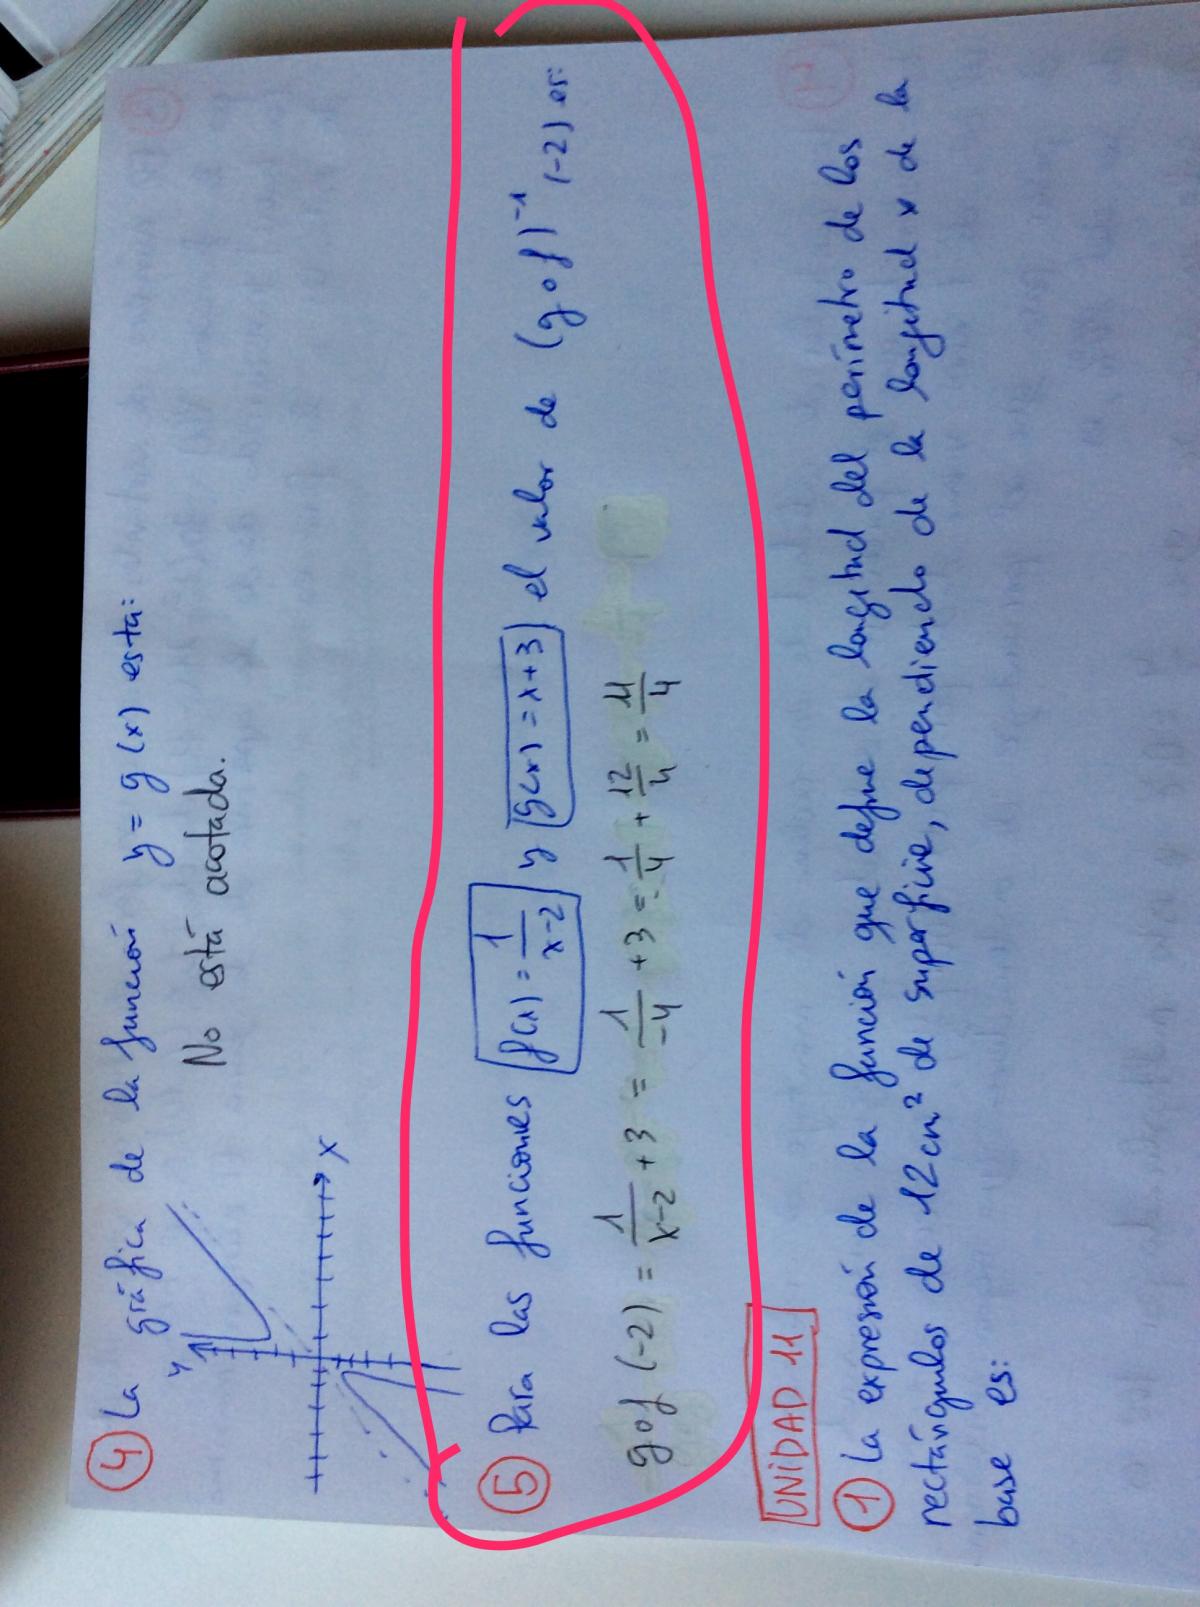 4 La gráfica de la función y = g(x) está:
No está acotada.
y
x
5 Para las funciones f(x) = 1/(x-2) y g(x) = x+3 el valor de (g o f)^-1 (-2) es:
g o f (-2) = 1/(x-2) + 3 = 1/-4 + 3 = -1/4 + 12/4 = 11/4
UNIDAD 11
1 La expresión de la función que define la longitud del perímetro de los
rectángulos de 12 cm² de superficie, dependiendo de la longitud x de la
base es: